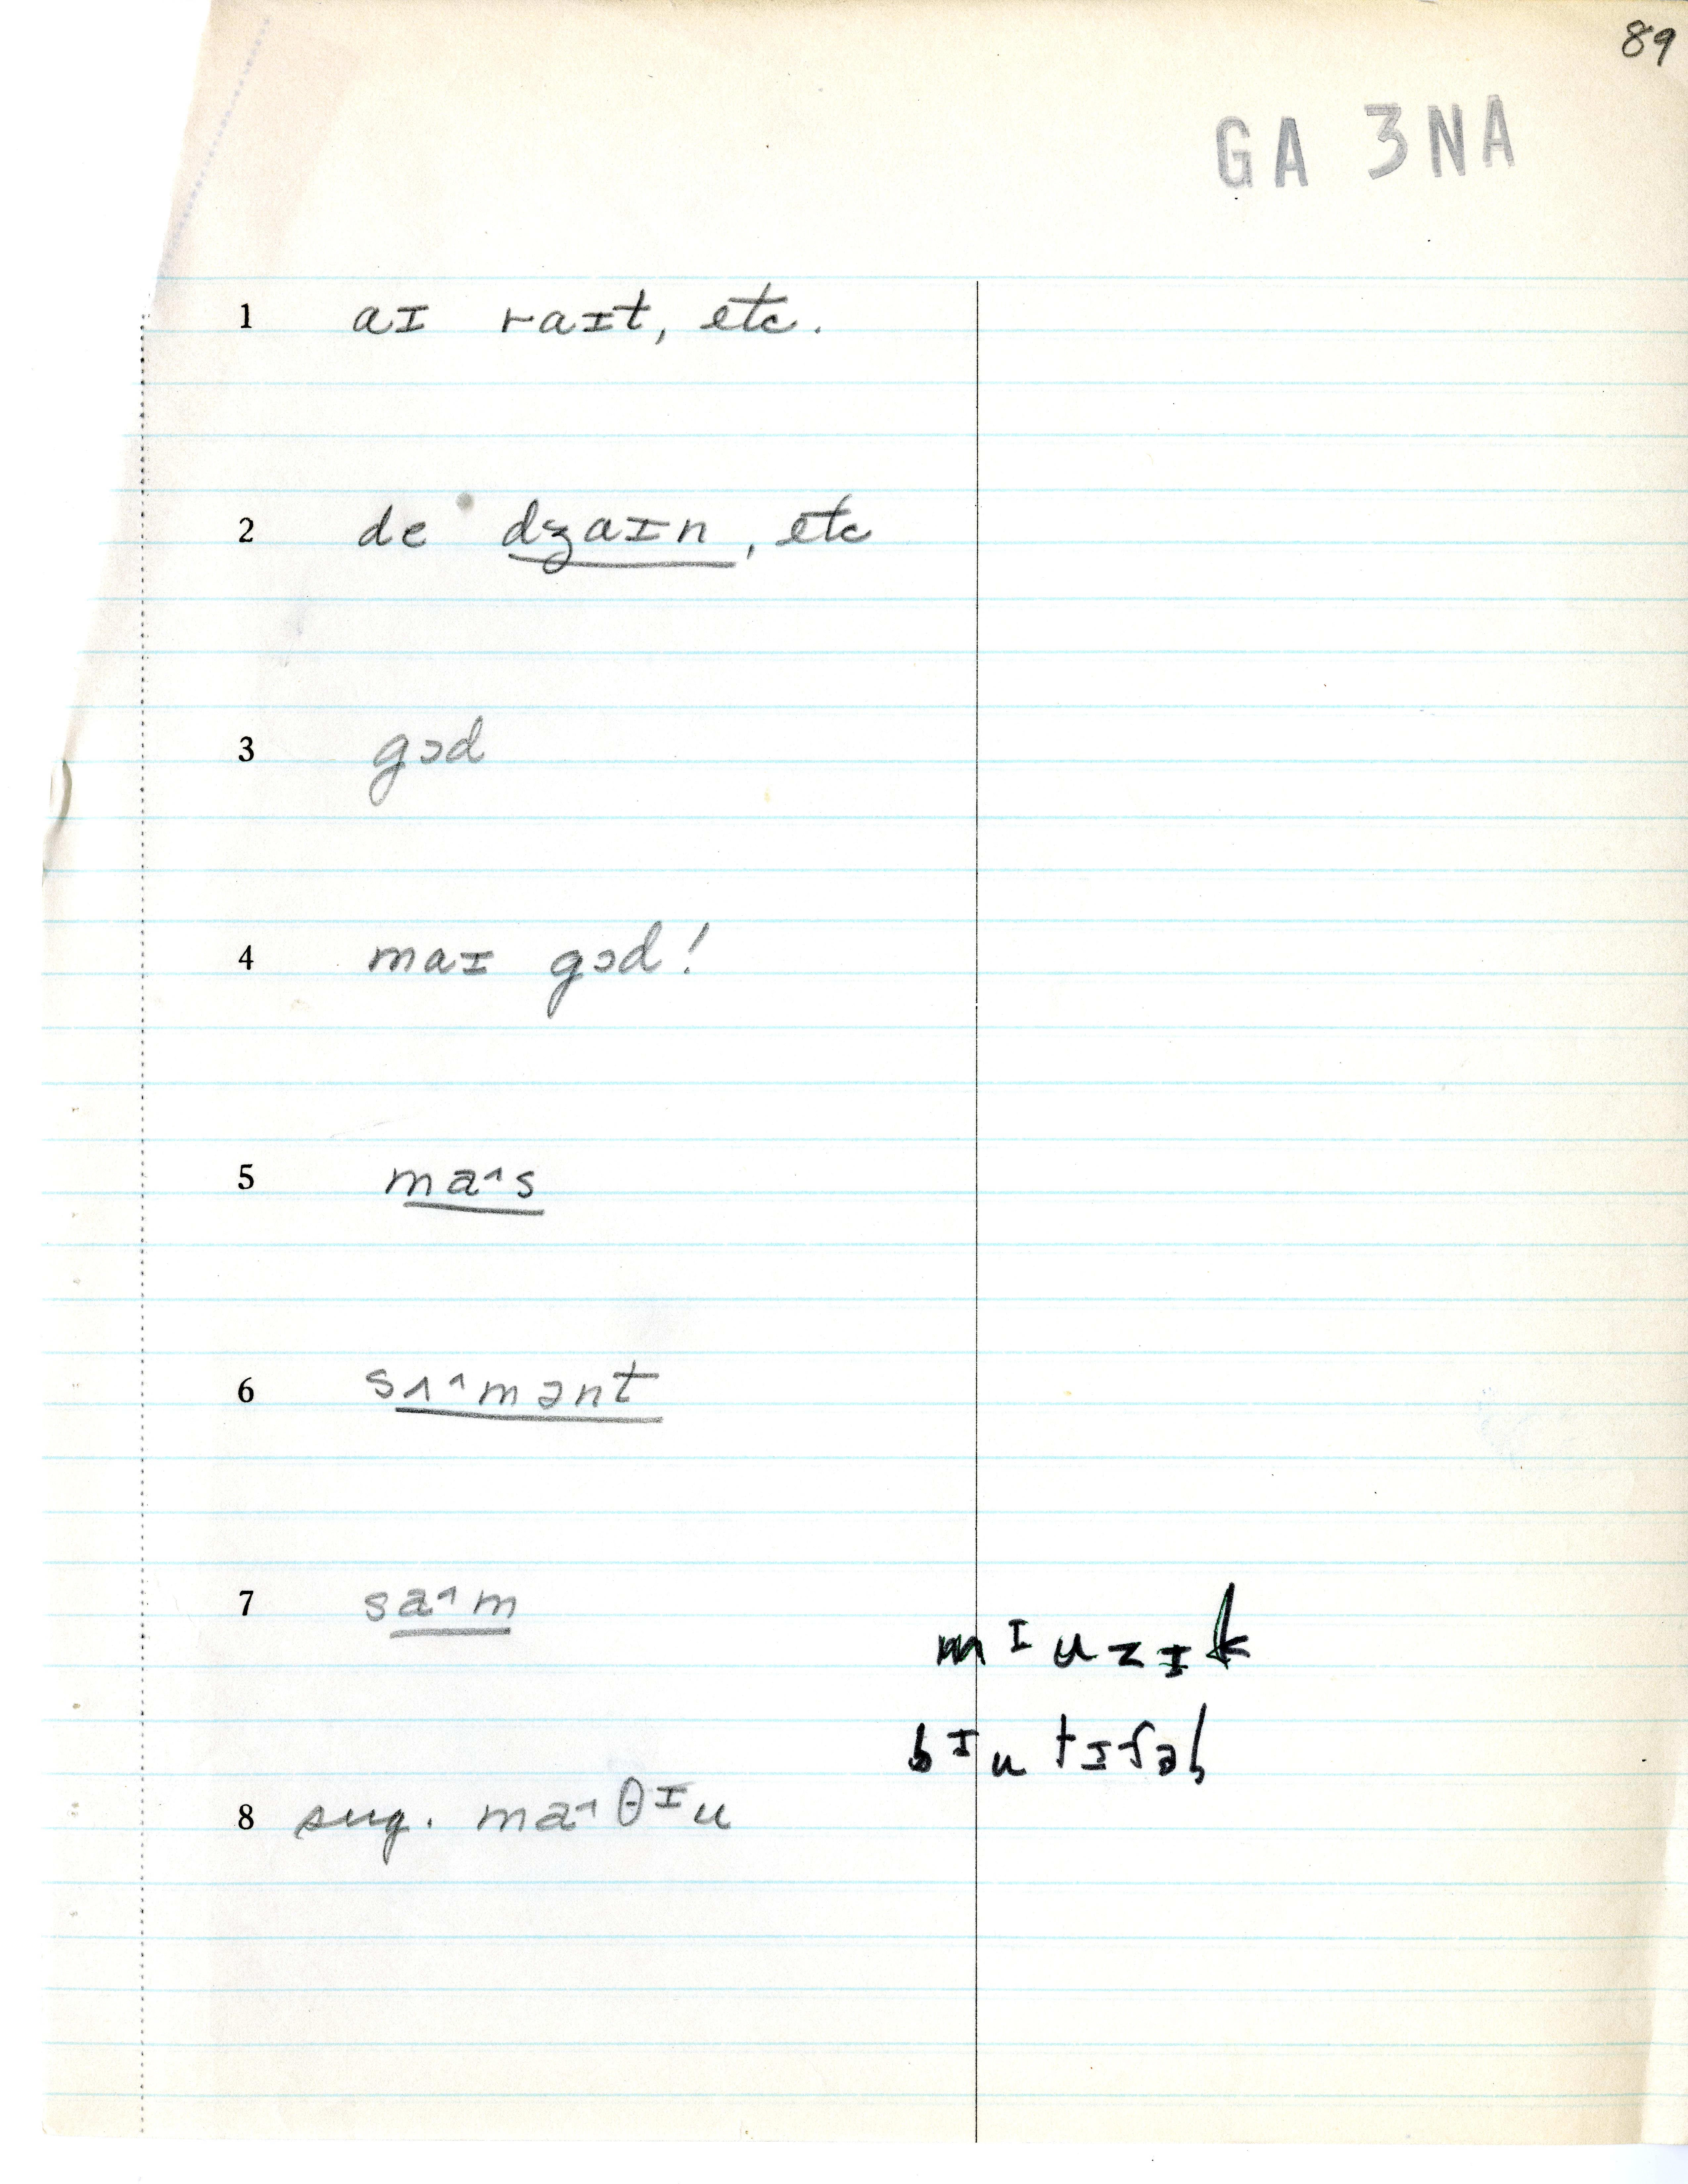 89
GA 3NA
1 aɪ raɪt, etc.
2 de dʒaɪn, etc
3 gɔd
4 maɪ gɔd!
5 ma˄s
6 sʌ˄mənt
7 sa˄m
mᶦuzɪk
bᶦutɪfəl
8 sug. ma˄θᶦu